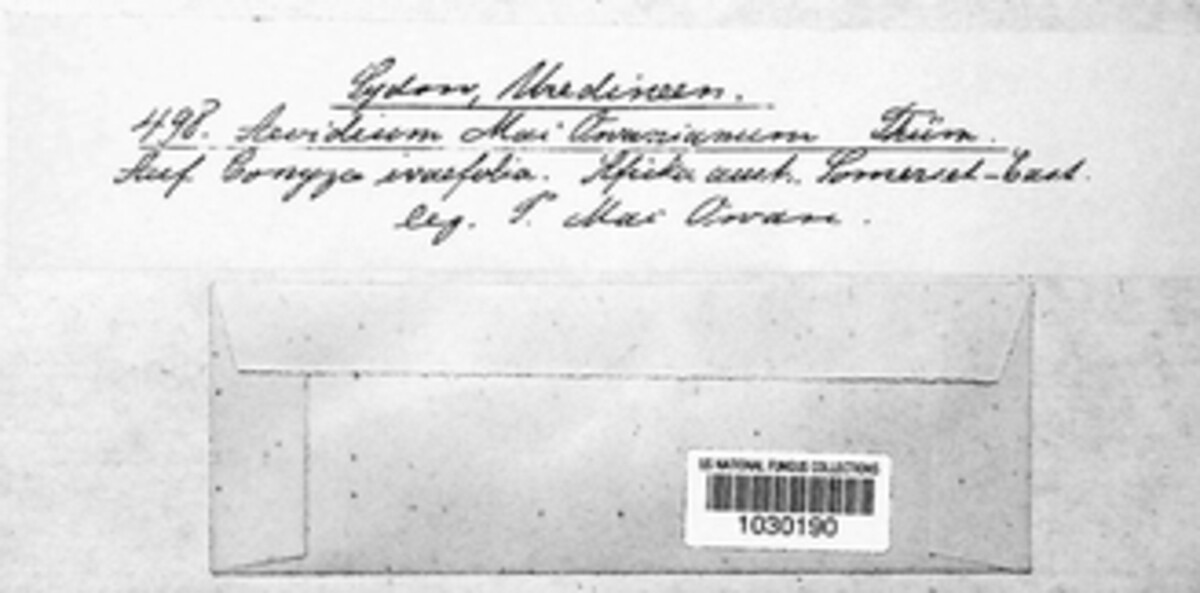 Sydow, Uredineen.
498. Aecidium Mac Owanianum Thüm.
Auf Conyza ivaefolia. Afrika aust. Somerset-East.
leg. P. Mac Owan.
US NATIONAL FUNGUS COLLECTIONS
1030190